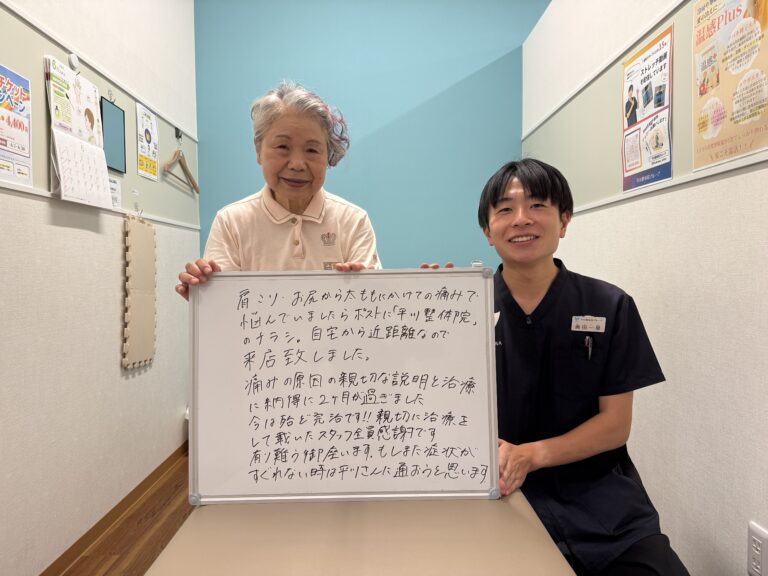 肩こり・お尻から太ももにかけての痛みで
悩んでいましたらポストに「平川整体院」
のチラシ。自宅から近距離なので
来店致しました。
痛みの原因の親切な説明と治療
に納得に2ヶ月が過ぎました
今は殆ど完治です!!親切に治療を
して戴いたスタッフ全員感謝です
有難う御座います。もしまた症状が
すぐれない時は平川さんに通おうと思います
4,400
ストレッチ動画
を配信しています
温感Plus